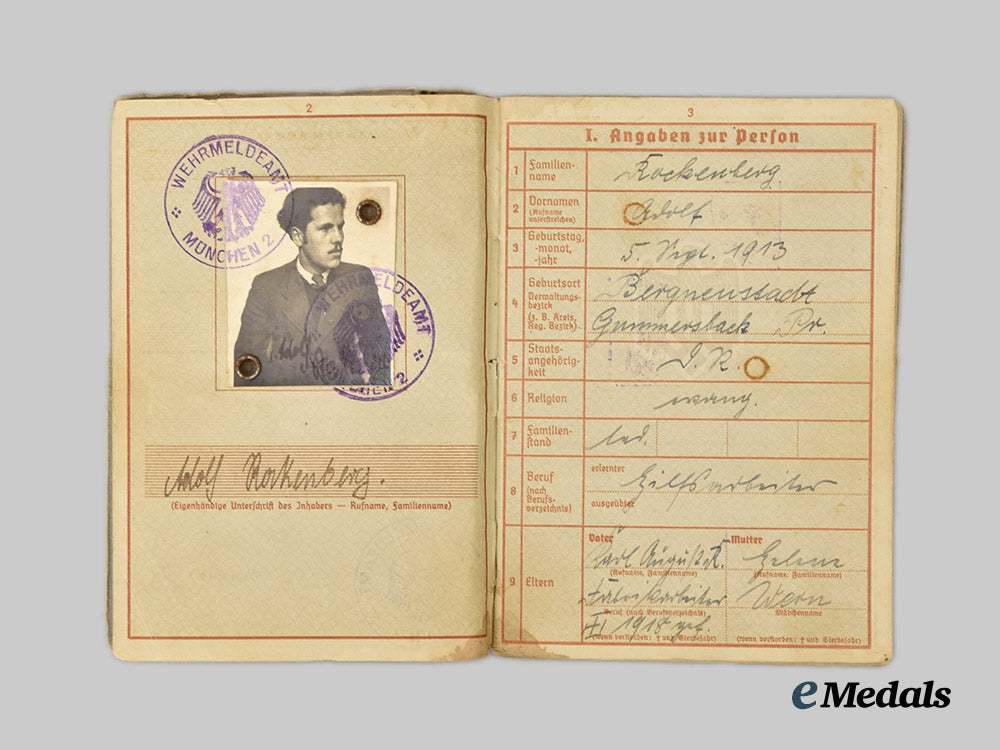 2
WEHRMELDEAMT
MÜNCHEN 2
WEHRMELDEAMT
MÜNCHEN 2
Adolf Rockenberg.
(Eigenhändige Unterschrift des Inhabers — Rufname, Familienname)
3
I. Angaben zur Person
1 Familien-
name
Rockenberg
2 Vornamen
(Rufname
unterstreichen)
Adolf
3 Geburtstag,
-monat,
-jahr
5. 1913
4 Geburtsort
Verwaltungs-
bezirk
(z. B. Kreis,
Reg. Bezirk)
Bergneustadt
Gummersbach Pr.
5 Staats-
angehörig-
keit
D. R.
6 Religion
evang.
7 Familien-
stand
led.
8 Beruf
(nach
Berufs-
verzeichnis)
erlernter
Hilfsarbeiter
ausgeübter
9 Eltern
Vater
Karl August R.
(Rufname, Familienname)
Fabrikarbeiter
Beruf (nach Berufsverzeichnis)
1918
(wenn verstorben: † und Sterbejahr)
Mutter
Helene
(Rufname, Familienname)
Wern
Mädchenname
(wenn verstorben: † und Sterbejahr)
eMedals